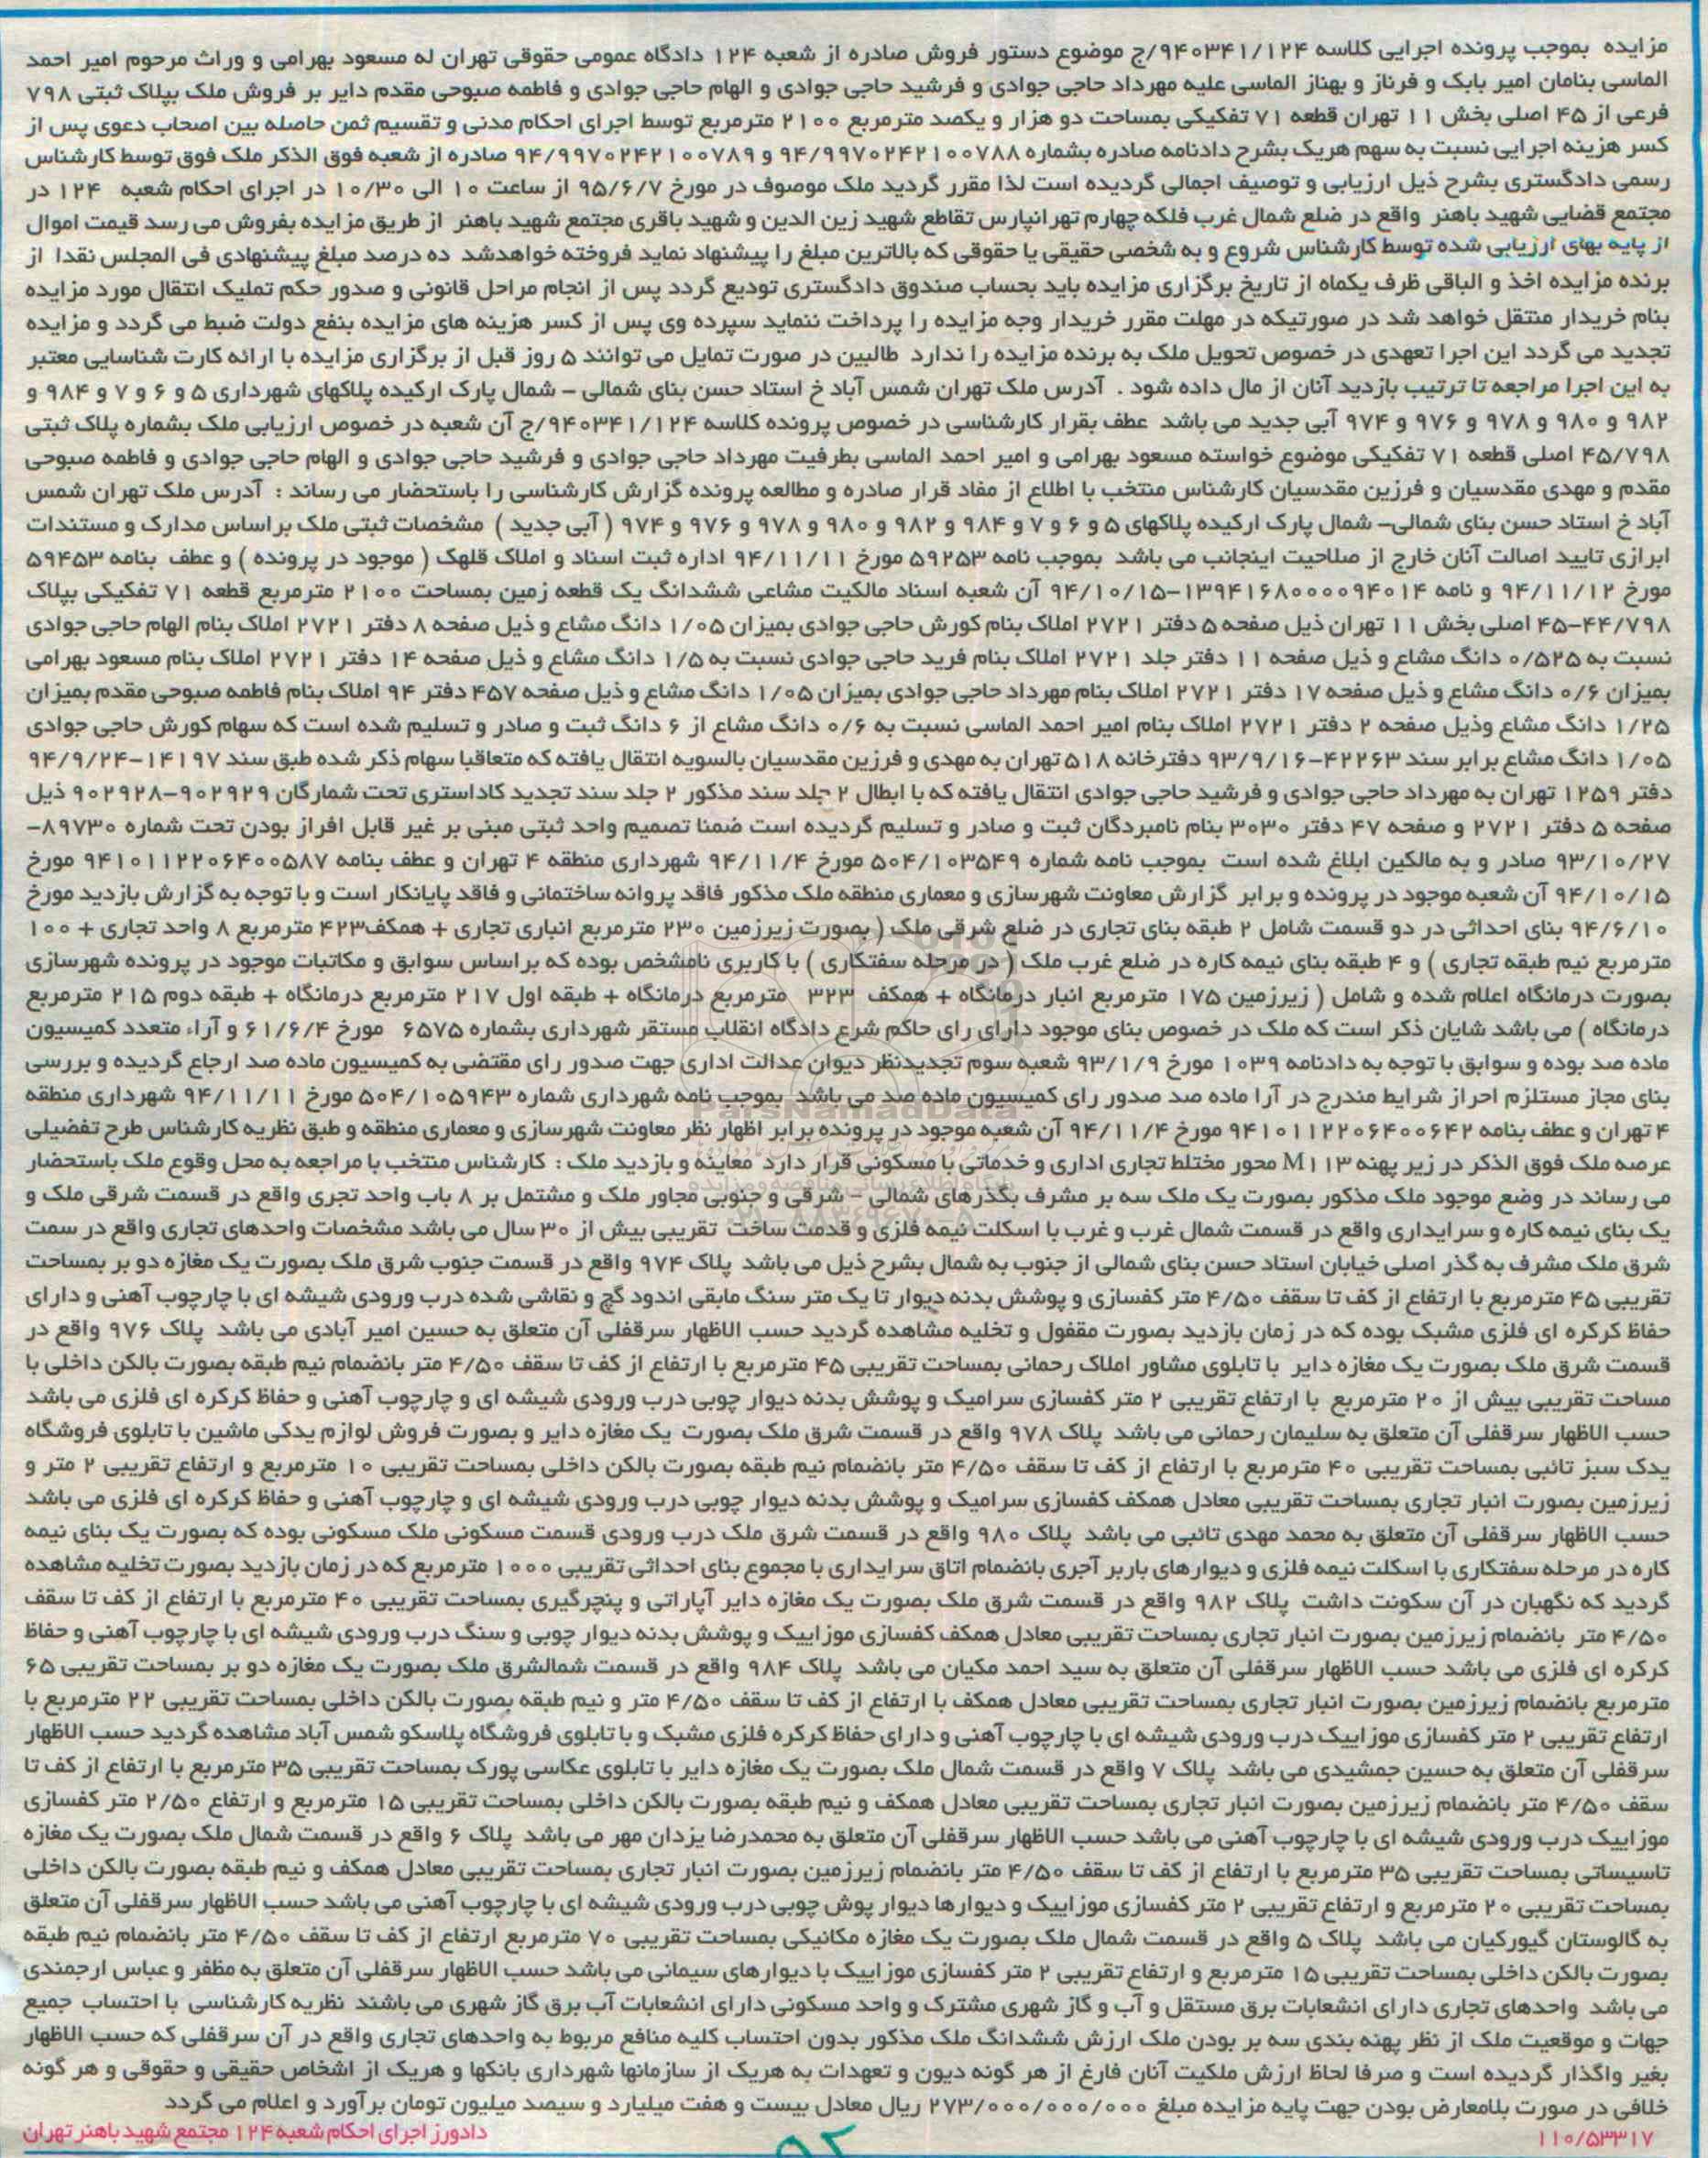 مزایده بموجب پرونده اجرایی کلاسه ۹۴۰۳۴۱/۱۲۴/ج موضوع دستور فروش صادره از شعبه ۱۲۴ دادگاه عمومی حقوقی تهران له مسعود بهرامی و وراث مرحوم امیر احمد
الماسی بنامان امیر بابک و فرناز و بهناز الماسی علیه مهرداد حاجی جوادی و فرشید حاجی جوادی و الهام حاجی جوادی و فاطمه صبوحی مقدم دایر بر فروش ملک بپلاک ثبتی ۷۹۸
فرعی از ۴۵ اصلی بخش ۱۱ تهران قطعه ۷۱ تفکیکی بمساحت دو هزار و یکصد مترمربع ۲۱۰۰ مترمربع توسط اجرای احکام مدنی و تقسیم ثمن حاصله بین اصحاب دعوی پس از
کسر هزینه اجرایی نسبت به سهم هریک بشرح دادنامه صادره بشماره ۹۴/۹۹۷۰۲۴۲۱۰۰۷۸۸ و ۹۴/۹۹۷۰۲۴۲۱۰۰۷۸۹ صادره از شعبه فوق الذکر ملک فوق توسط کارشناس
رسمی دادگستری بشرح ذیل ارزیابی و توصیف اجمالی گردیده است لذا مقرر گردید ملک موصوف در مورخ ۹۵/۶/۷ از ساعت ۱۰ الی ۱۰/۳۰ در اجرای احکام شعبه ۱۲۴ در
مجتمع قضایی شهید باهنر واقع در ضلع شمال غرب فلکه چهارم تهرانپارس تقاطع شهید زین الدین و شهید باقری مجتمع شهید باهنر از طریق مزایده بفروش می رسد قیمت اموال
از پایه بهای ارزیابی شده توسط کارشناس شروع و به شخصی حقیقی یا حقوقی که بالاترین مبلغ را پیشنهاد نماید فروخته خواهدشد ده درصد مبلغ پیشنهادی فی المجلس نقدا از
برنده مزایده اخذ و الباقی ظرف یکماه از تاریخ برگزاری مزایده باید بحساب صندوق دادگستری تودیع گردد پس از انجام مراحل قانونی و صدور حکم تملیک انتقال مورد مزایده
بنام خریدار منتقل خواهد شد در صورتیکه در مهلت مقرر خریدار وجه مزایده را پرداخت ننماید سپرده وی پس از کسر هزینه های مزایده بنفع دولت ضبط می گردد و مزایده
تجدید می گردد این اجرا تعهدی در خصوص تحویل ملک به برنده مزایده را ندارد طالبین در صورت تمایل می توانند ۵ روز قبل از برگزاری مزایده با ارائه کارت شناسایی معتبر
به این اجرا مراجعه تا ترتیب بازدید آنان از مال داده شود . آدرس ملک تهران شمس آباد خ استاد حسن بنای شمالی – شمال پارک ارکیده پلاکهای شهرداری ۵ و ۶ و ۷ و ۹۸۴ و
۹۸۲ و ۹۸۰ و ۹۷۸ و ۹۷۶ و ۹۷۴ آبی جدید می باشد عطف بقرار کارشناسی در خصوص پرونده کلاسه ۹۴۰۳۴۱/۱۲۴/ج آن شعبه در خصوص ارزیابی ملک بشماره پلاک ثبتی
۴۵/۷۹۸ اصلی قطعه ۷۱ تفکیکی موضوع خواسته مسعود بهرامی و امیر احمد الماسی بطرفیت مهرداد حاجی جوادی و فرشید حاجی جوادی و الهام حاجی جوادی و فاطمه صبوحی
مقدم و مهدی مقدسیان و فرزین مقدسیان کارشناس منتخب با اطلاع از مفاد قرار صادره و مطالعه پرونده گزارش کارشناسی را باستحضار می رساند : آدرس ملک تهران شمس
آباد خ استاد حسن بنای شمالی– شمال پارک ارکیده پلاکهای ۵ و ۶ و ۷ و ۹۸۴ و ۹۸۲ و ۹۸۰ و ۹۷۸ و ۹۷۶ و ۹۷۴ ( آبی جدید ) مشخصات ثبتی ملک براساس مدارک و مستندات
ابرازی تایید اصالت آنان خارج از صلاحیت اینجانب می باشد بموجب نامه ۵۹۲۵۳ مورخ ۹۴/۱۱/۱۱ اداره ثبت اسناد و املاک قلهک ( موجود در پرونده ) و عطف بنامه ۵۹۴۵۳
مورخ ۹۴/۱۱/۱۲ و نامه ۱۳۹۴۱۶۸۰۰۰۰۹۴۰۱۴–۹۴/۱۰/۱۵ آن شعبه اسناد مالکیت مشاعی ششدانگ یک قطعه زمین بمساحت ۲۱۰۰ مترمربع قطعه ۷۱ تفکیکی بپلاک
۴۵–۴۴/۷۹۸ اصلی بخش ۱۱ تهران ذیل صفحه ۵ دفتر ۲۷۲۱ املاک بنام کورش حاجی جوادی بمیزان ۱/۰۵ دانگ مشاع و ذیل صفحه ۸ دفتر ۲۷۲۱ املاک بنام الهام حاجی جوادی
نسبت به ۰/۵۲۵ دانگ مشاع و ذیل صفحه ۱۱ دفتر جلد ۲۷۲۱ املاک بنام فرید حاجی جوادی نسبت به ۱/۵ دانگ مشاع و ذیل صفحه ۱۴ دفتر ۲۷۲۱ املاک بنام مسعود بهرامی
بمیزان ۰/۶ دانگ مشاع و ذیل صفحه ۱۷ دفتر ۲۷۲۱ املاک بنام مهرداد حاجی جوادی بمیزان ۱/۰۵ دانگ مشاع و ذیل صفحه ۴۵۷ دفتر ۹۴ املاک بنام فاطمه صبوحی مقدم بمیزان
۱/۲۵ دانگ مشاع وذیل صفحه ۲ دفتر ۲۷۲۱ املاک بنام امیر احمد الماسی نسبت به ۰/۶ دانگ مشاع از ۶ دانگ ثبت و صادر و تسلیم شده است که سهام کورش حاجی جوادی
۱/۰۵ دانگ مشاع برابر سند ۴۲۲۶۳–۹۳/۹/۱۶ دفترخانه ۵۱۸ تهران به مهدی و فرزین مقدسیان بالسویه انتقال یافته که متعاقبا سهام ذکر شده طبق سند ۱۴۱۹۷–۹۴/۹/۲۴
دفتر ۱۲۵۹ تهران به مهرداد حاجی جوادی و فرشید حاجی جوادی انتقال یافته که با ابطال ۲ جلد سند مذکور ۲ جلد سند تجدید کاداستری تحت شمارگان ۹۰۲۹۲۹–۹۰۲۹۲۸ ذیل
صفحه ۵ دفتر ۲۷۲۱ و صفحه ۴۷ دفتر ۳۰۳۰ بنام نامبردگان ثبت و صادر و تسلیم گردیده است ضمنا تصمیم واحد ثبتی مبنی بر غیر قابل افراز بودن تحت شماره ۸۹۷۳۰–
۹۳/۱۰/۲۷ صادر و به مالکین ابلاغ شده است بموجب نامه شماره ۵۰۴/۱۰۳۵۴۹ مورخ ۹۴/۱۱/۴ شهرداری منطقه ۴ تهران و عطف بنامه ۹۴۱۰۱۱۲۲۰۶۴۰۰۵۸۷ مورخ
۹۴/۱۰/۱۵ آن شعبه موجود در پرونده و برابر گزارش معاونت شهرسازی و معماری منطقه ملک مذکور فاقد پروانه ساختمانی و فاقد پایانکار است و با توجه به گزارش بازدید مورخ
۹۴/۶/۱۰ بنای احداثی در دو قسمت شامل ۲ طبقه بنای تجاری در ضلع شرقی ملک ( بصورت زیرزمین ۲۳۰ مترمربع انباری تجاری + همکف۴۲۳ مترمربع ۸ واحد تجاری + ۱۰۰
مترمربع نیم طبقه تجاری ) و ۴ طبقه بنای نیمه کاره در ضلع غرب ملک ( در مرحله سفتکاری ) با کاربری نامشخص بوده که براساس سوابق و مکاتبات موجود در پرونده شهرسازی
بصورت درمانگاه اعلام شده و شامل ( زیرزمین ۱۷۵ مترمربع انبار درمانگاه + همکف ۳۲۳ مترمربع درمانگاه + طبقه اول ۲۱۷ مترمربع درمانگاه + طبقه دوم ۲۱۵ مترمربع
درمانگاه ) می باشد شایان ذکر است که ملک در خصوص بنای موجود دارای رای حاکم شرع دادگاه انقلاب مستقر شهرداری بشماره ۶۵۷۵ مورخ ۶۱/۶/۴ و آراء متعدد کمیسیون
ماده صد بوده و سوابق با توجه به دادنامه ۱۰۳۹ مورخ ۹۳/۱/۹ شعبه سوم تجدیدنظر دیوان عدالت اداری جهت صدور رای مقتضی به کمیسیون ماده صد ارجاع گردیده و بررسی
بنای مجاز مستلزم احراز شرایط مندرج در آرا ماده صد صدور رای کمیسیون ماده صد می باشد بموجب نامه شهرداری شماره ۵۰۴/۱۰۵۹۴۳ مورخ ۹۴/۱۱/۱۱ شهرداری منطقه
۴ تهران و عطف بنامه ۹۴۱۰۱۱۲۲۰۶۴۰۰۶۴۲ مورخ ۹۴/۱۱/۴ آن شعبه موجود در پرونده برابر اظهار نظر معاونت شهرسازی و معماری منطقه و طبق نظریه کارشناس طرح تفضیلی
عرصه ملک فوق الذکر در زیر پهنه M۱۱۳ محور مختلط تجاری اداری و خدماتی با مسکونی قرار دارد معاینه و بازدید ملک : کارشناس منتخب با مراجعه به محل وقوع ملک باستحضار
می رساند در وضع موجود ملک مذکور بصورت یک ملک سه بر مشرف بگذرهای شمالی – شرقی و جنوبی مجاور ملک و مشتمل بر ۸ باب واحد تجری واقع در قسمت شرقی ملک و
یک بنای نیمه کاره و سرایداری واقع در قسمت شمال غرب و غرب با اسکلت نیمه فلزی و قدمت ساخت تقریبی بیش از ۳۰ سال می باشد مشخصات واحدهای تجاری واقع در سمت
شرق ملک مشرف به گذر اصلی خیابان استاد حسن بنای شمالی از جنوب به شمال بشرح ذیل می باشد پلاک ۹۷۴ واقع در قسمت جنوب شرق ملک بصورت یک مغازه دو بر بمساحت
تقریبی ۴۵ مترمربع با ارتفاع از کف تا سقف ۴/۵۰ متر کفسازی و پوشش بدنه دیوار تا یک متر سنگ مابقی اندود گچ و نقاشی شده درب ورودی شیشه ای با چارچوب آهنی و دارای
حفاظ کرکره ای فلزی مشبک بوده که در زمان بازدید بصورت مقفول و تخلیه مشاهده گردید حسب الاظهار سرقفلی آن متعلق به حسین امیر آبادی می باشد پلاک ۹۷۶ واقع در
قسمت شرق ملک بصورت یک مغازه دایر با تابلوی مشاور املاک رحمانی بمساحت تقریبی ۴۵ مترمربع با ارتفاع از کف تا سقف ۴/۵۰ متر بانضمام نیم طبقه بصورت بالکن داخلی با
مساحت تقریبی بیش از ۲۰ مترمربع با ارتفاع تقریبی ۲ متر کفسازی سرامیک و پوشش بدنه دیوار چوبی درب ورودی شیشه ای و چارچوب آهنی و حفاظ کرکره ای فلزی می باشد
حسب الاظهار سرقفلی آن متعلق به سلیمان رحمانی می باشد پلاک ۹۷۸ واقع در قسمت شرق ملک بصورت یک مغازه دایر و بصورت فروش لوازم یدکی ماشین با تابلوی فروشگاه
یدک سبز تائبی بمساحت تقریبی ۴۰ مترمربع با ارتفاع از کف تا سقف ۴/۵۰ متر بانضمام نیم طبقه بصورت بالکن داخلی بمساحت تقریبی ۱۰ مترمربع و ارتفاع تقریبی ۲ متر و
زیرزمین بصورت انبار تجاری بمساحت تقریبی معادل همکف کفسازی سرامیک و پوشش بدنه دیوار چوبی درب ورودی شیشه ای و چارچوب آهنی و حفاظ کرکره ای فلزی می باشد
حسب الاظهار سرقفلی آن متعلق به محمد مهدی تائبی می باشد پلاک ۹۸۰ واقع در قسمت شرق ملک درب ورودی قسمت مسکونی ملک مسکونی بوده که بصورت یک بنای نیمه
کاره در مرحله سفتکاری با اسکلت نیمه فلزی و دیوارهای باربر آجری بانضمام اتاق سرایداری با مجموع بنای احداثی تقریبی ۱۰۰۰ مترمربع که در زمان بازدید بصورت تخلیه مشاهده
گردید که نگهبان در آن سکونت داشت پلاک ۹۸۲ واقع در قسمت شرق ملک بصورت یک مغازه دایر آپاراتی و پنچرگیری بمساحت تقریبی ۴۰ مترمربع با ارتفاع از کف تا سقف
۴/۵۰ متر بانضمام زیرزمین بصورت انبار تجاری بمساحت تقریبی معادل همکف کفسازی موزاییک و پوشش بدنه دیوار چوبی و سنگ درب ورودی شیشه ای با چارچوب آهنی و حفاظ
کرکره ای فلزی می باشد حسب الاظهار سرقفلی آن متعلق به سید احمد مکیان می باشد پلاک ۹۸۴ واقع در قسمت شمالشرق ملک بصورت یک مغازه دو بر بمساحت تقریبی ۶۵
مترمربع بانضمام زیرزمین بصورت انبار تجاری بمساحت تقریبی معادل همکف با ارتفاع از کف تا سقف ۴/۵۰ متر و نیم طبقه بصورت بالکن داخلی بمساحت تقریبی ۲۲ مترمربع با
ارتفاع تقریبی ۲ متر کفسازی موزاییک درب ورودی شیشه ای با چارچوب آهنی و دارای حفاظ کرکره فلزی مشبک و با تابلوی فروشگاه پلاسکو شمس آباد مشاهده گردید حسب الاظهار
سرقفلی آن متعلق به حسین جمشیدی می باشد پلاک ۷ واقع در قسمت شمال ملک بصورت یک مغازه دایر با تابلوی عکاسی پورک بمساحت تقریبی ۳۵ مترمربع با ارتفاع از کف تا
سقف ۴/۵۰ متر بانضمام زیرزمین بصورت انبار تجاری بمساحت تقریبی معادل همکف و نیم طبقه بصورت بالکن داخلی بمساحت تقریبی ۱۵ مترمربع و ارتفاع ۲/۵۰ متر کفسازی
موزاییک درب ورودی شیشه ای با چارچوب آهنی می باشد حسب الاظهار سرقفلی آن متعلق به محمدرضا یزدان مهر می باشد پلاک ۶ واقع در قسمت شمال ملک بصورت یک مغازه
تاسیساتی بمساحت تقریبی ۳۵ مترمربع با ارتفاع از کف تا سقف ۴/۵۰ متر بانضمام زیرزمین بصورت انبار تجاری بمساحت تقریبی معادل همکف و نیم طبقه بصورت بالکن داخلی
بمساحت تقریبی ۲۰ مترمربع و ارتفاع تقریبی ۲ متر کفسازی موزاییک و دیوارها دیوار پوش چوبی درب ورودی شیشه ای با چارچوب آهنی می باشد حسب الاظهار سرقفلی آن متعلق
به گالوستان گیورکیان می باشد پلاک ۵ واقع در قسمت شمال ملک بصورت یک مغازه مکانیکی بمساحت تقریبی ۷۰ مترمربع ارتفاع از کف تا سقف ۴/۵۰ متر بانضمام نیم طبقه
بصورت بالکن داخلی بمساحت تقریبی ۱۵ مترمربع و ارتفاع تقریبی ۲ متر کفسازی موزاییک با دیوارهای سیمانی می باشد حسب الاظهار سرقفلی آن متعلق به مظفر و عباس ارجمندی
می باشد واحدهای تجاری دارای انشعابات برق مستقل و آب و گاز شهری مشترک و واحد مسکونی دارای انشعابات آب برق گاز شهری می باشند نظریه کارشناسی با احتساب جمیع
جهات و موقعیت ملک از نظر پهنه بندی سه بر بودن ملک ارزش ششدانگ ملک مذکور بدون احتساب کلیه منافع مربوط به واحدهای تجاری واقع در آن سرقفلی که حسب الاظهار
بغیر واگذار گردیده است و صرفا لحاظ ارزش ملکیت آنان فارغ از هر گونه دیون و تعهدات به هریک از سازمانها شهرداری بانکها و هریک از اشخاص حقیقی و حقوقی و هر گونه
خلافی در صورت بلامعارض بودن جهت پایه مزایده مبلغ ۲۷۳/۰۰۰/۰۰۰/۰۰۰ ریال معادل بیست و هفت میلیارد و سیصد میلیون تومان برآورد و اعلام می گردد
دادورز اجرای احکام شعبه ۱۲۴ مجتمع شهید باهنر تهران
۱۱۰/۵۳۳۱۷
ParsNamadData